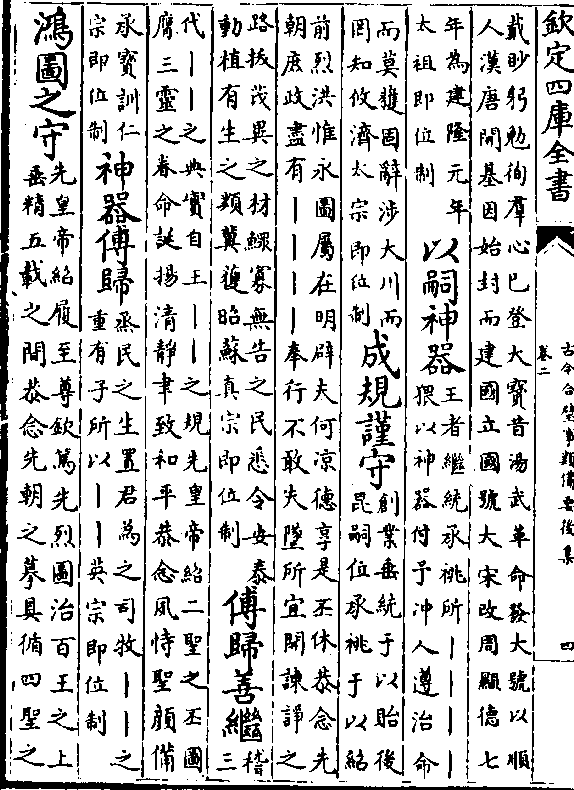 欽定四庫全書
古今合璧事類備要後集
卷二
四
戴眇躬勉徇羣心已登大寶昔湯武革命發大號以順
人漢唐開基因始封而建國立國號大宋改周顯德七
年為建隆元年
太祖即位制
以嗣神器
王者繼統承祧所丨丨丨丨
猥以神器付予冲人遵治命
而莫獲固辭涉大川而
罔知攸濟太宗即位制
成規謹守
創業垂統于以貽後
昆嗣位承祧于以紹
前烈洪惟永圖屬在明辟夫何涼德享是丕休恭念先
朝庶政盡有丨丨丨丨奉行不敢失墜所宜開諫諍之
路拔茂異之材鰥寡無告之民悉令安泰
動植有生之類冀復昭蘇真宗即位制
傳歸善繼
稽
三
代丨丨之典實自王丨丨之規先皇帝紹二聖之丕圖
膺三靈之眷命誕揚清靜聿致和平恭念夙恃聖顔備
承寶訓仁
宗即位制
神器傳歸
烝民之生置君為之司牧丨丨之
重有子所以丨丨英宗即位制
鴻圖之守
先皇帝紹履至尊欽篤先烈圖治百王之上
垂精五載之間恭念先朝之摹具循四聖之